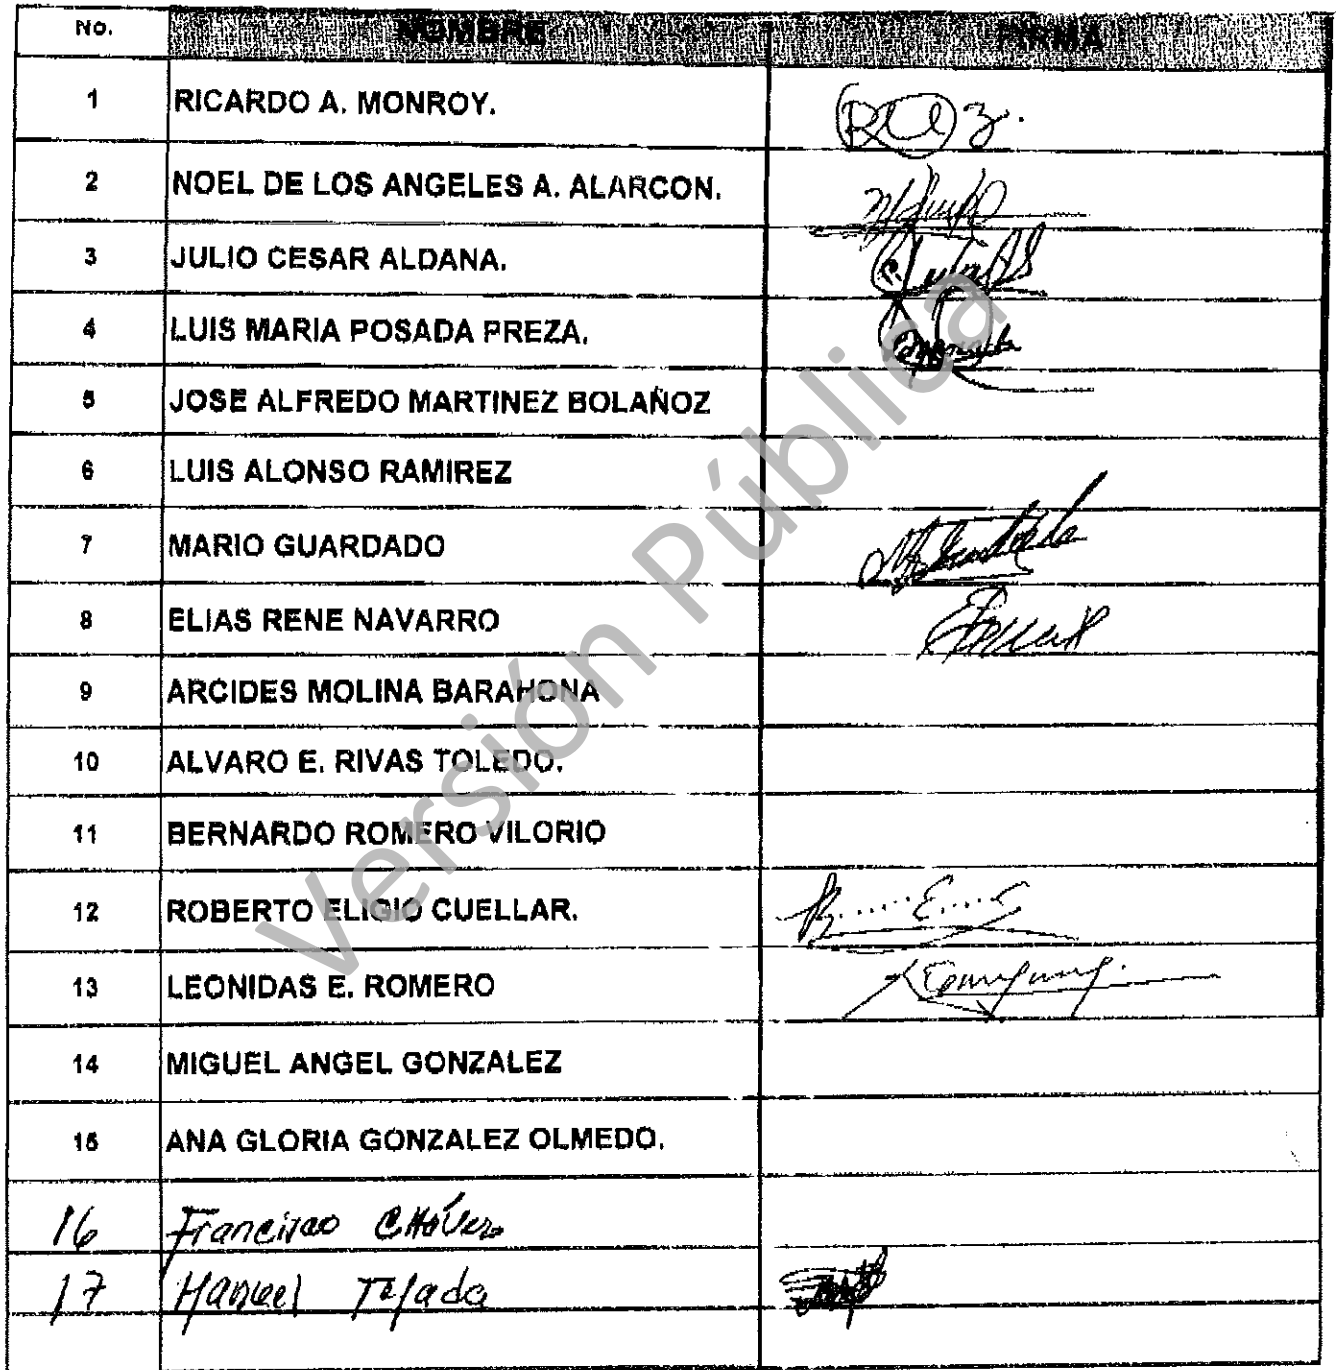 No. NOMBRE FIRMA
1 RICARDO A. MONROY.
2 NOEL DE LOS ANGELES A. ALARCON.
3 JULIO CESAR ALDANA.
4 LUIS MARIA POSADA PREZA.
5 JOSE ALFREDO MARTINEZ BOLAÑOZ
6 LUIS ALONSO RAMIREZ
7 MARIO GUARDADO
8 ELIAS RENE NAVARRO
9 ARCIDES MOLINA BARAHONA
10 ALVARO E. RIVAS TOLEDO.
11 BERNARDO ROMERO VILORIO
12 ROBERTO ELIGIO CUELLAR.
13 LEONIDAS E. ROMERO
14 MIGUEL ANGEL GONZALEZ
15 ANA GLORIA GONZALEZ OLMEDO.
16 Francisco CHávez
17 Manuel Tejada
Versión Pública